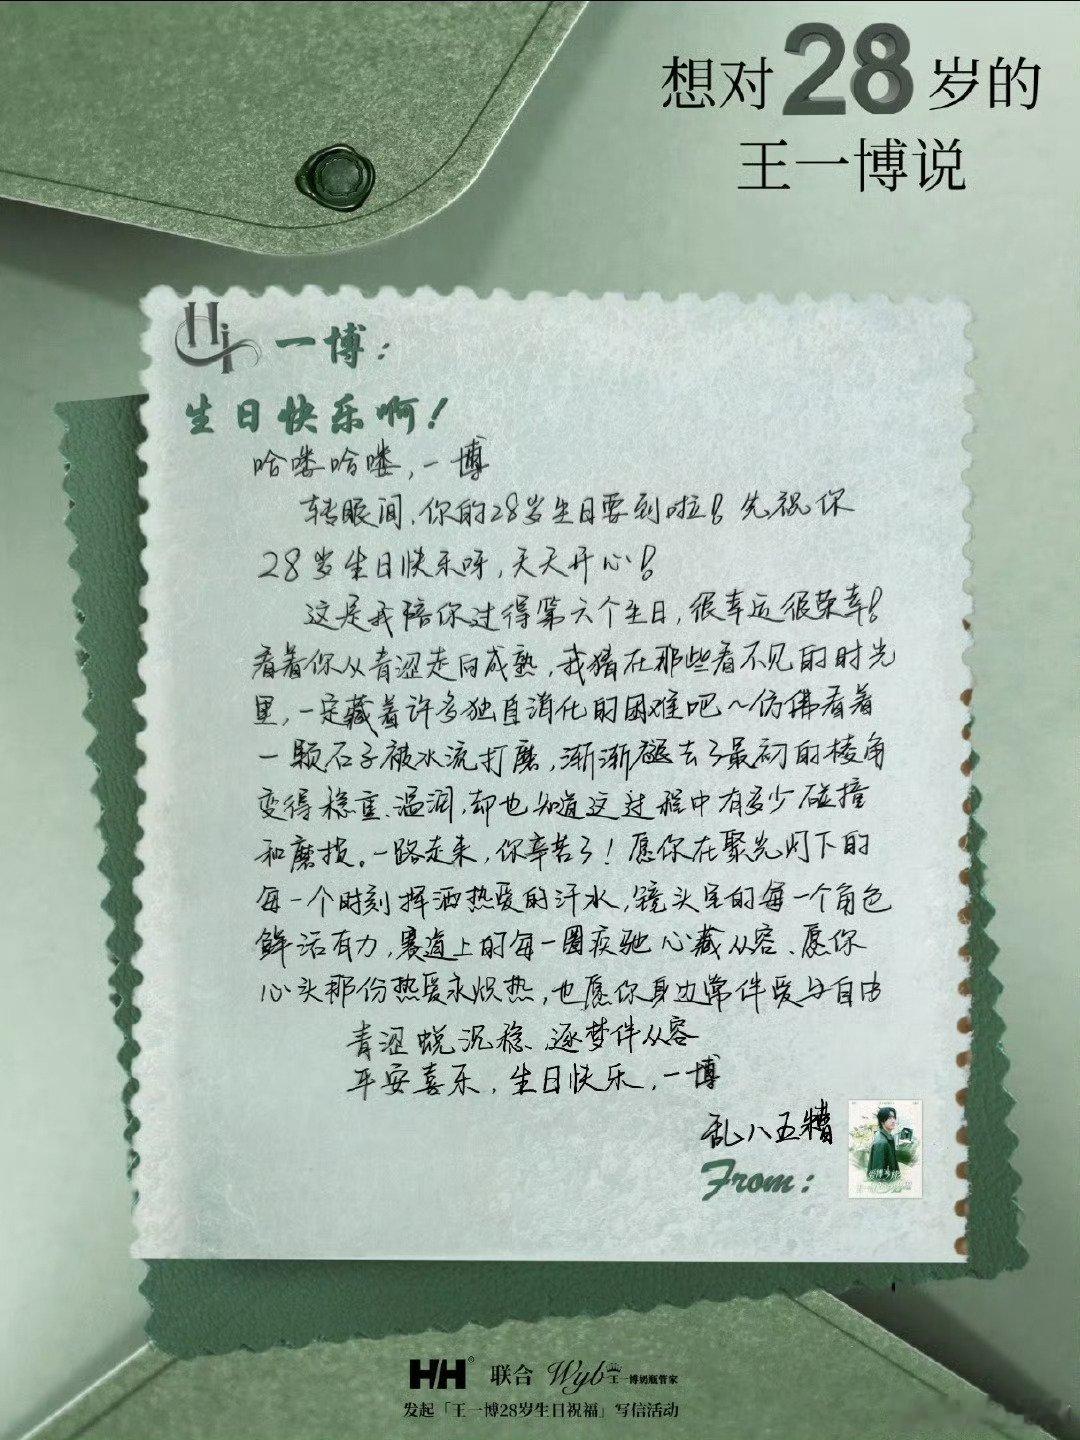 想对28岁的
王一博说
Hi 一博：
生日快乐啊！
哈喽哈喽，一博
转眼间，你的28岁生日要到啦！先祝你
28岁生日快乐呀，天天开心！
这是我陪你过得第六个生日，很幸运很荣幸！
看着你从青涩走向成熟，我猜在那些看不见的时光
里，一定藏着许多独自消化的困难吧～仿佛看着
一颗石子被水流打磨，渐渐褪去了最初的棱角
变得稳重、温润，却也知道这过程中有多少碰撞
和磨损。一路走来，你辛苦了！愿你在聚光灯下的
每一个时刻挥洒热爱的汗水，镜头里的每一个角色
鲜活有力，赛道上的每一圈疾驰心藏从容、愿你
心头那份热爱永炽热，也愿你身边常伴爱与自由
青涩蜕沉稳、逐梦伴从容
平安喜乐，生日快乐，一博
乱八五糟
From：
HH® 联合 Wyb 王一博奶瓶管家
发起「王一博28岁生日祝福」写信活动